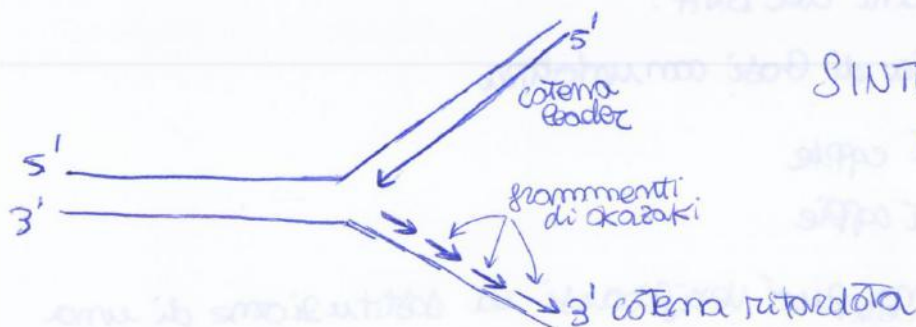 5'
5'
SINT
catena
leader
5'
3'
frammenti
di okazaki
3' catena ritardata